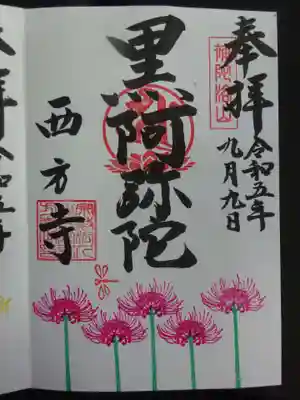 奉拝
令和五年
九月九日
黒阿弥陀
西方寺